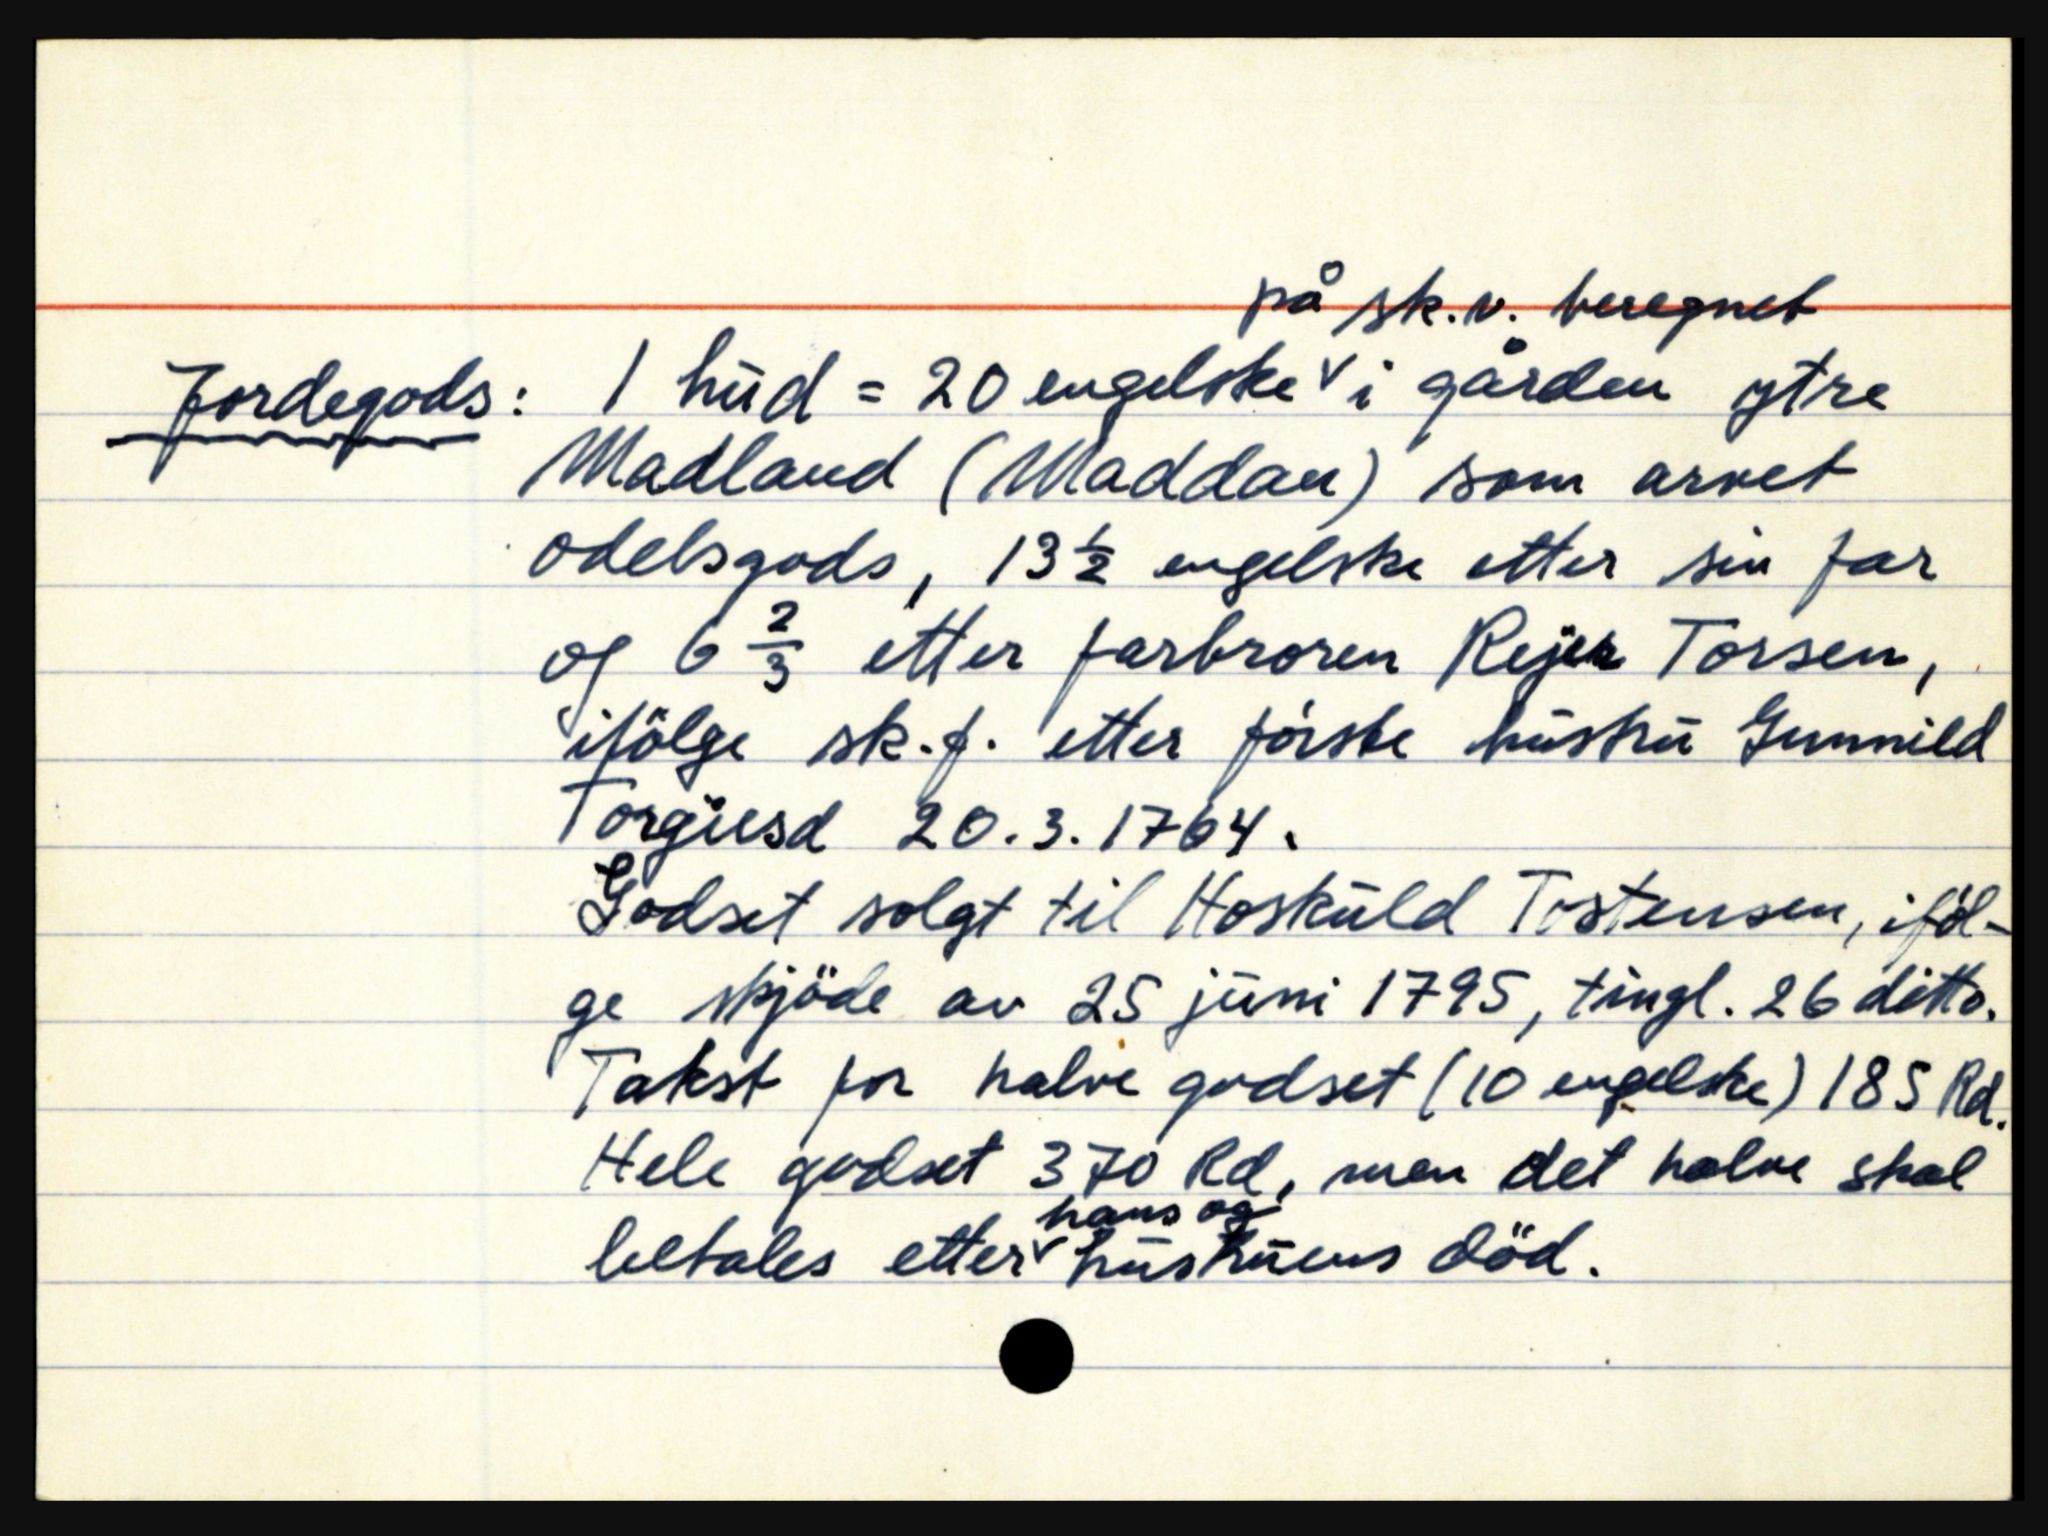 på sk.v. beregnet
Jordegods: 1 hud = 20 engelske i gården ytre
Madland (Maddan) som arvet
odelsgods, 13 1/2 engelske etter sin far
og 6 2/3 etter farbroren Rejer Torsen,
ifölge sk.f. etter förste hustru Gunnild
Torgiesd 20.3.1764.
Godset solgt til Hoskuld Tostensen, iföl-
ge skjöde av 25 juni 1795, tingl. 26 ditto.
Takst for halve godset (10 engelske) 185 Rd.
Hele godset 370 Rd, men det halve skal
hans og
betales etter hustruens död.